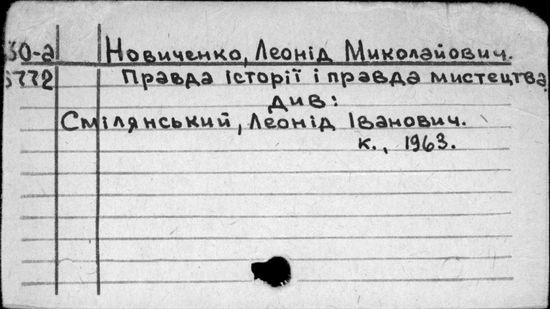 30-а Новиченко, Леонід Миколайович.
5772 Правда історії і правда мистецтва
див:
Смілянський, Леонід Іванович.
К., 1963.